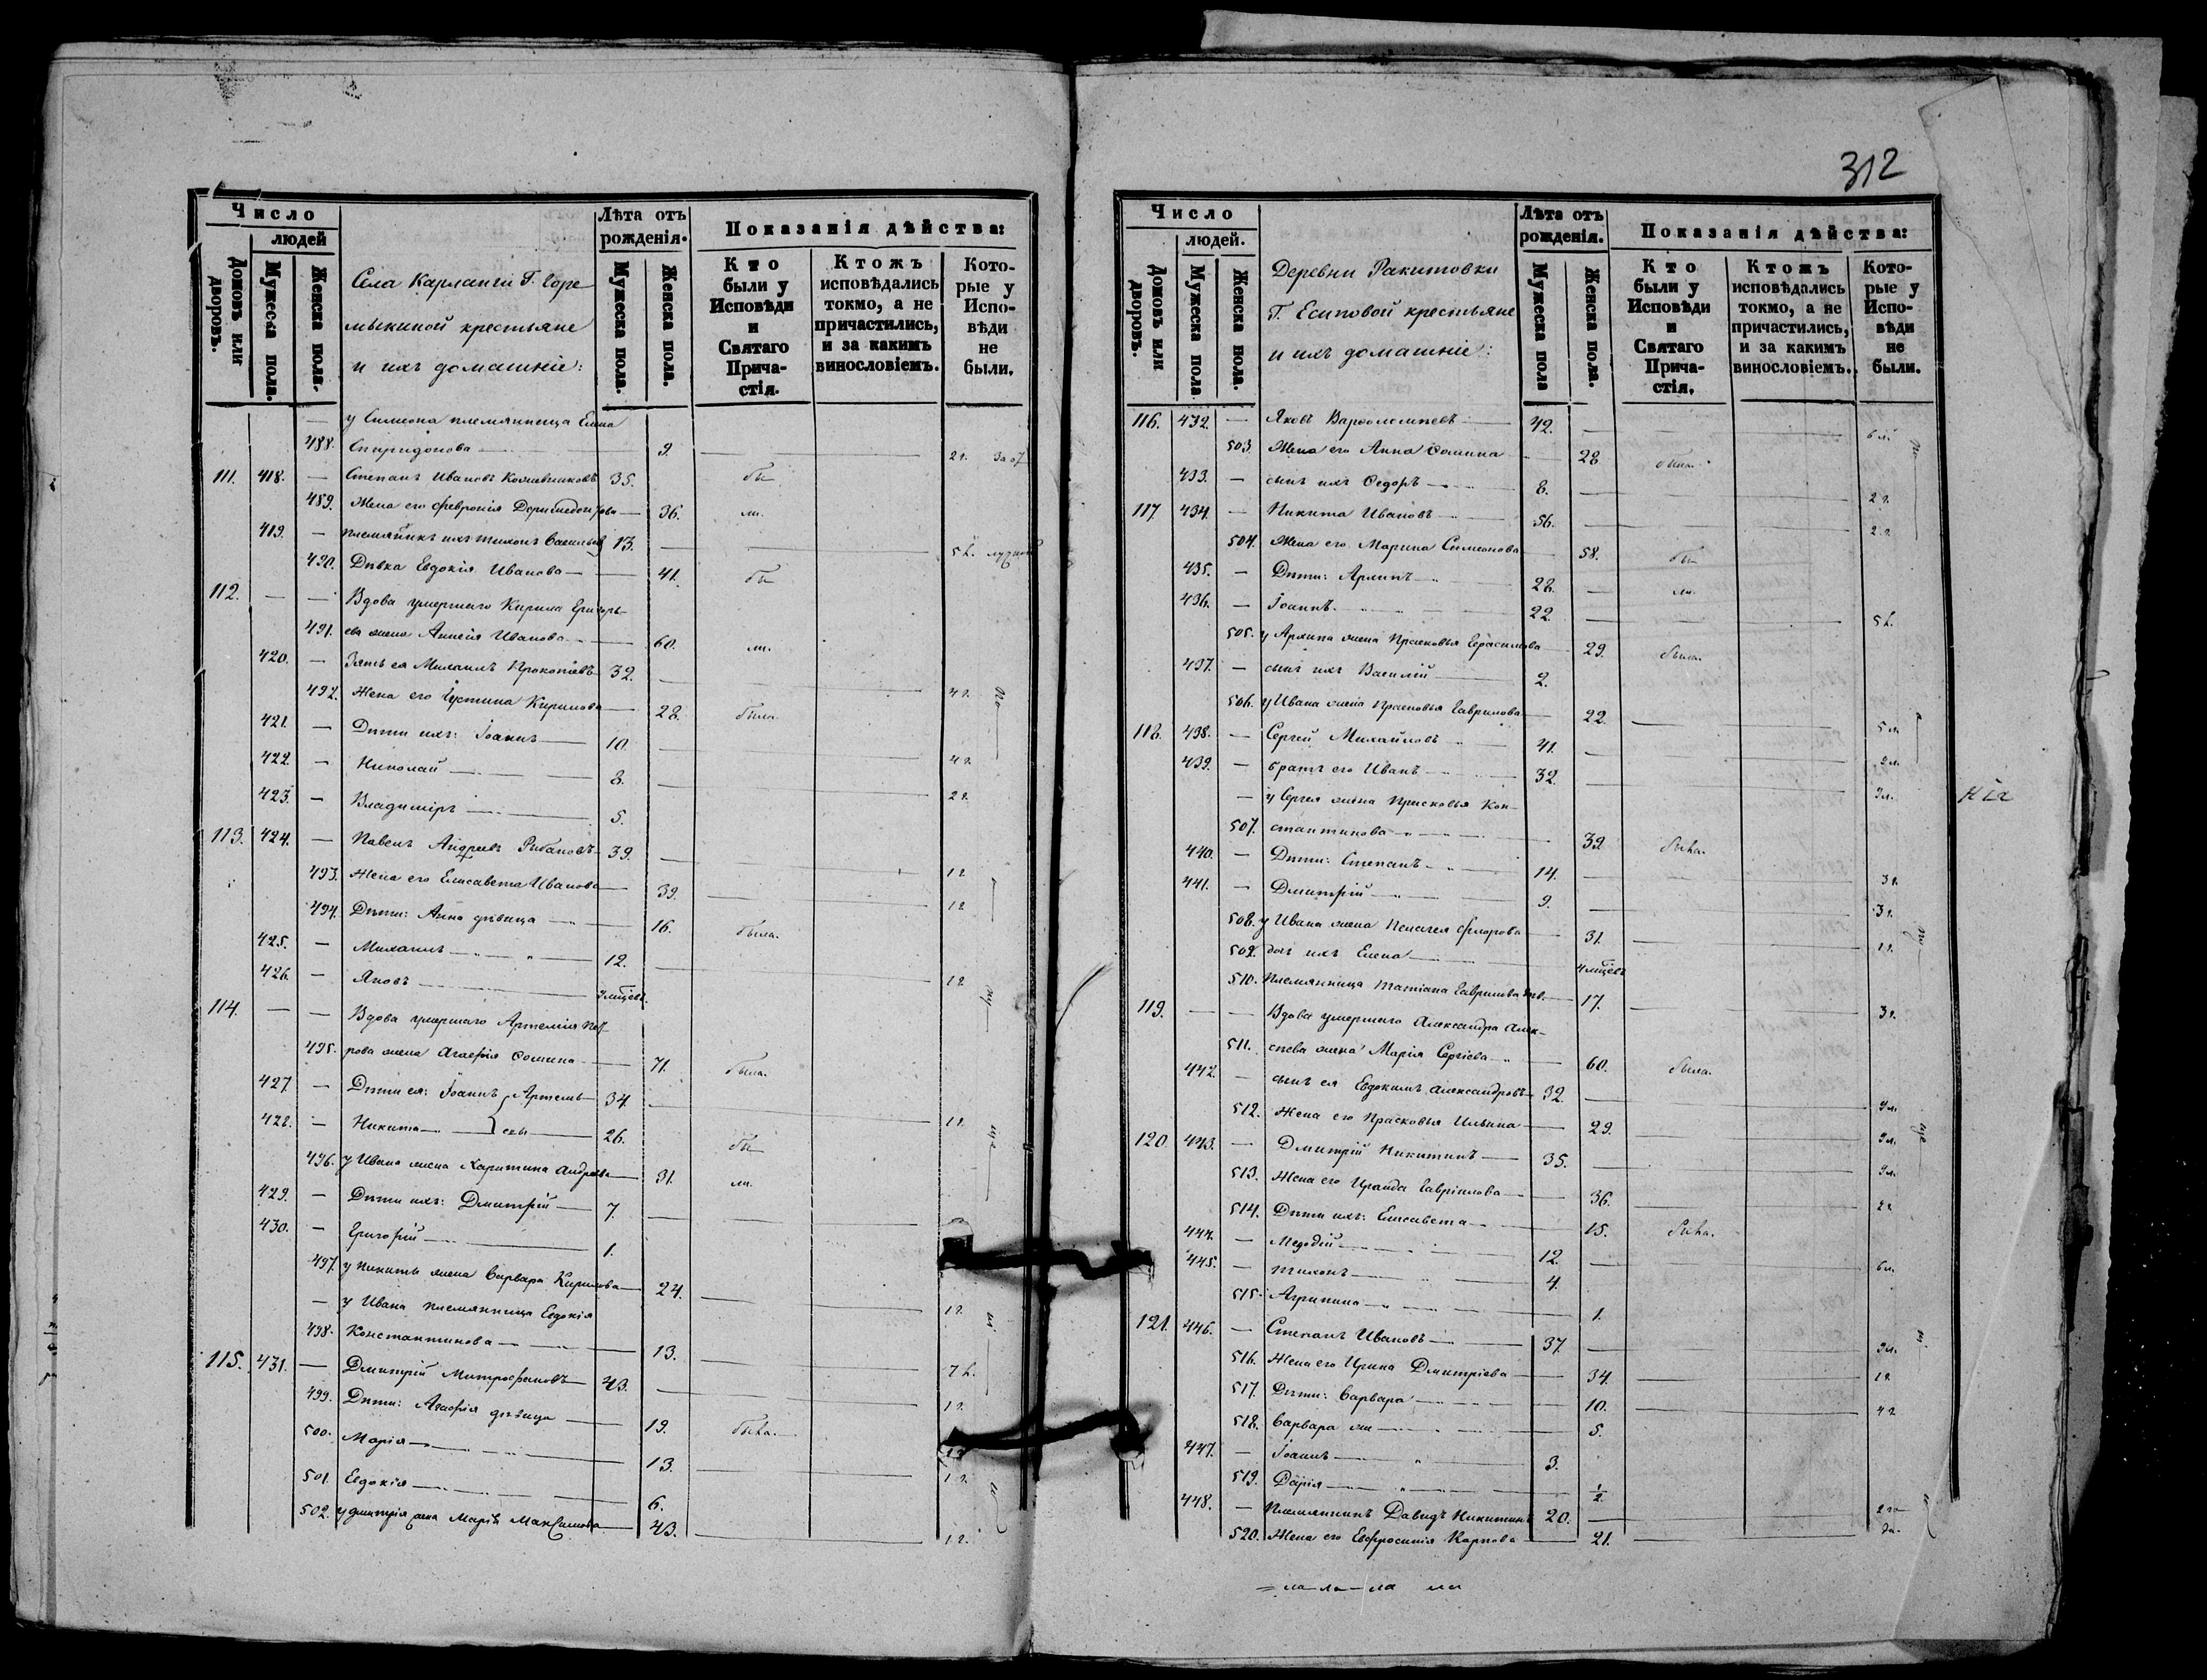 312
Число
людей
Домовъ или дворовъ.
Мужеска пола.
Женска пола.
Села Карланги Г. Горе-
мыкиной крестьяне
и ихъ домашніе:
Лѣта отъ рожденія.
Мужеска пола.
Женска пола.
Показанія дѣйства:
Кто были у Исповѣди и Святаго Причастія.
Ктожъ исповѣдались токмо, а не причастились, и за какимъ винословіемъ.
Которые у Исповѣди не были.
— у Симеона племянница Елена
488. Спиридонова — 9. — 2 г.
111. 418. — Степанъ Ивановъ 35. бы
489. Жена его Февронія — 36. ли.
419. — племянникъ ихъ Тихонъ Васильевъ 13. —
490. Дѣвка Евдокія Иванова — 41. бы
112. — — Вдова умершаго Кирила Григорь-
491. ева жена Анисія Иванова — 60. ли.
420. — Зять ея Михаилъ Прокопіевъ 32. — 4 г.
492. Жена его Іустина Кирилова — 28. была.
421. — Дѣти ихъ: Іоаннъ — 10. — 4 г.
422. — Николай — 8. — 2 г.
423. — Владиміръ — 5.
113. 424. — Павелъ Андреевъ 39. — 1 г.
493. Жена его Елисавета Иванова — 39. — 1 г.
494. Дѣти: Анна дѣвица — 16. была.
425. — Михаилъ — 12. — 1 г.
426. — Яковъ — 3 мѣсяц.
114. — — Вдова умершаго Артемія Пет-
495. рова жена Агафія Ѳомина — 71. была.
427. — Дѣти ея: Іоаннъ Артемь- 34. — 1 г.
428. — Никита — евы — 26. бы
496. у Ивана жена Харитина Андреева — 31. ли.
429. — Дѣти ихъ: Дмитрій — 7. —
430. — Григорій — 1.
497. у Никиты жена Варвара Кирилова — 24. — 1 г.
— у Ивана племянница Евдокія
498. Константинова — 13. —
115. 431. — Дмитрій Митрофановъ — 43. — 1 г.
499. Дѣти: Агафія дѣвица — 19. была.
500. Марія — 13. — 1 г.
501. Евдокія — 6.
502. у Дмитрія жена Марія Максимова — 43. — 1 г.
Число
людей.
Домовъ или дворовъ.
Мужеска пола
Женска пола.
Деревни Ракитовки
Г. Есиповой крестьяне
и ихъ домашніе:
Лѣта отъ рожденія.
Мужеска пола
Женска пола.
Показанія дѣйства:
Кто были у Исповѣди и Святаго Причастія.
Ктожъ исповѣдались токмо, а не причастились, и за какимъ винословіемъ.
Которые у Исповѣди не были.
116. 432. — Яковъ Варѳоломѣевъ — 42. —
503. Жена его Анна Ѳомина 28 была.
433. — сынъ ихъ Ѳедоръ — 8. — 2 г.
117. 434. — Никита Ивановъ — 56. — 2 г.
504. Жена его Марина Симеонова — 58. бы
435. — Дѣти: Архипъ — 28. — ли.
436. — Іоаннъ. — 22. —
505. у Архипа жена Прасковья Герасимова 29. была.
437. — сынъ ихъ Василій — 2.
506. у Ивана жена Прасковья Гаврилова 22. — 5 л.
118. 438. — Сергей Михайловъ — 41. — 2 л.
439. — братъ его Иванъ — 32. — 3 л.
— у Сергея жена Прасковья Кон-
507. стантинова — 39. была.
440. — Дѣти: Степанъ — 14. — 3 г.
441. — Дмитрій — 9. — 3 г.
508. у Ивана жена Пелагея Флорова — 31. — 1 г.
509. дочь ихъ Елена — 4 мѣсяц.
510. Племянница Татіана Гаврилова дѣв. — 17. — 3 г.
119. — — Вдова умершаго Александра Алек-
511. сѣева жена Марія Сергіева — 60. была.
442. — сынъ ея Евдокимъ Александровъ 32. — 3 л.
512. Жена его Прасковья Ильина — 29. — 3 л.
120. 443. — Дмитрій Никитинъ — 35. — 3 л.
513. Жена его Ираида Гавріилова — 36. — 2 г.
514. Дѣти ихъ: Елисавета — 15. была.
444. — Меѳодій — 12. — 6 л.
445. — Тихонъ — 4.
515. Агрипина — 1.
121. 446. — Степанъ Ивановъ — 37. — 3 л.
516. Жена его Ирина Дмитріева — 34. — 1 г.
517. Дѣти: Варвара — 10. — 4 г.
518. Варвара — 5.
447. — Іоаннъ — 3.
519. Дарія — ½.
448. — Племянникъ Давидъ Никитинъ 20. —
520. Жена его Евфросинія Карпова — 21. —